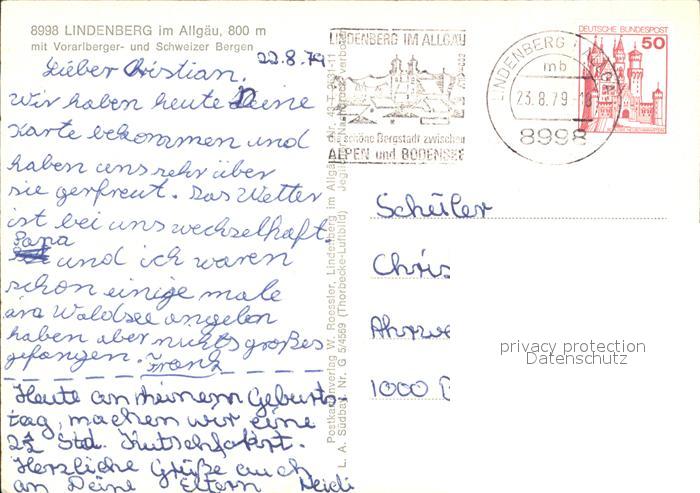 8998 LINDENBERG im Allgäu, 800 m
mit Vorarlberger- und Schweizer Bergen
22.8.79
Lieber Christian.
Wir haben heute Deine
Karte bekommen und
haben uns sehr über
sie gerfreut. Das Wetter
ist bei uns wechselhaft.
Papa
und ich waren
schon einige male
am Waldsee angelen
haben aber nichts großes
gefangen. Frank
Heute an meinem Geburts-
tag, machen wir eine
2½ Std. Kutschfahrt.
Herzliche Grüße auch
an Deine Eltern Heidi
Postkartenverlag W. Roessler, Lindenberg im Allgäu
L. A. Südbad. Nr. G 5/4569 (Thorbecke-Luftbild)
LINDENBERG IM ALLGÄU
die schöne Bergstadt zwischen
ALPEN und BODENSEE
LINDENBERG I. ALLGÄU
mb
23.8.79-18
8998
DEUTSCHE BUNDESPOST
50
Schüler
Chris
Ahrwe
1000
privacy protection
Datenschutz